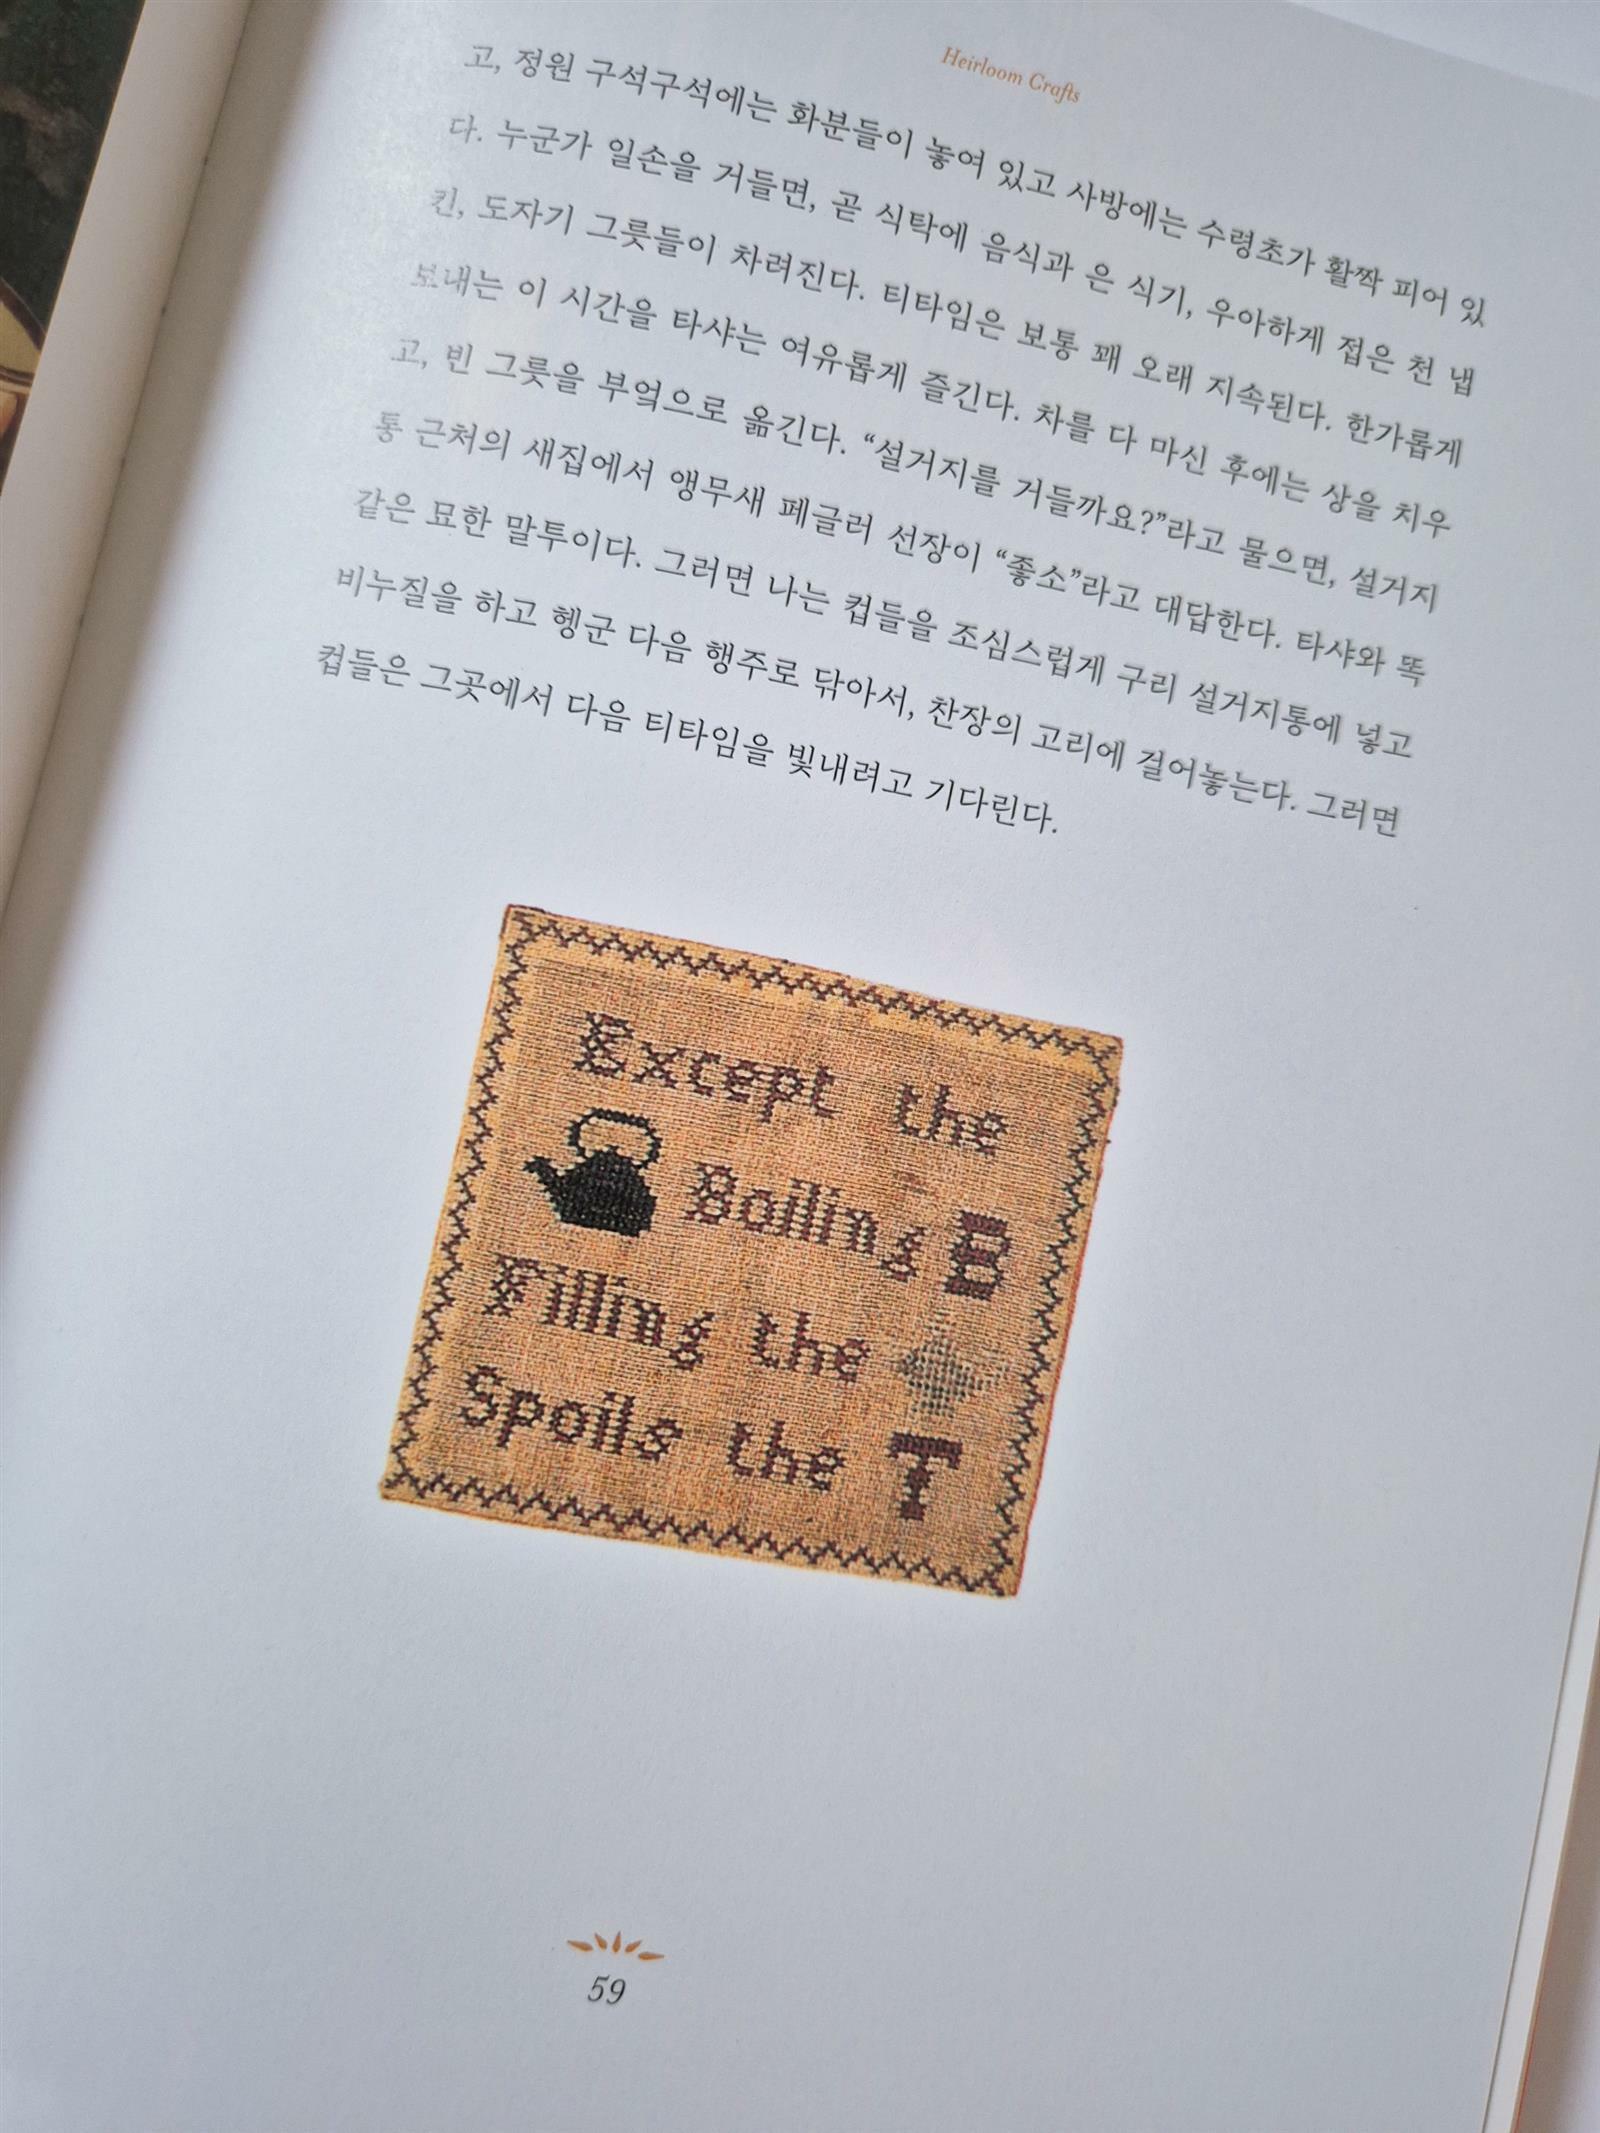 Heirloom Crafts
고, 정원 구석구석에는 화분들이 놓여 있고 사방에는 수령초가 활짝 피어 있
다. 누군가 일손을 거들면, 곧 식탁에 음식과 은 식기, 우아하게 접은 천 냅
킨, 도자기 그릇들이 차려진다. 티타임은 보통 꽤 오래 지속된다. 한가롭게
보내는 이 시간을 타샤는 여유롭게 즐긴다. 차를 다 마신 후에는 상을 치우
고, 빈 그릇을 부엌으로 옮긴다. “설거지를 거들까요?”라고 물으면, 설거지
통 근처의 새집에서 앵무새 페글러 선장이 “좋소”라고 대답한다. 타샤와 똑
같은 묘한 말투이다. 그러면 나는 컵들을 조심스럽게 구리 설거지통에 넣고
비누질을 하고 헹군 다음 행주로 닦아서, 찬장의 고리에 걸어놓는다. 그러면
컵들은 그곳에서 다음 티타임을 빛내려고 기다린다.
Except the
Boiling B
Filling the
Spoils the T
59